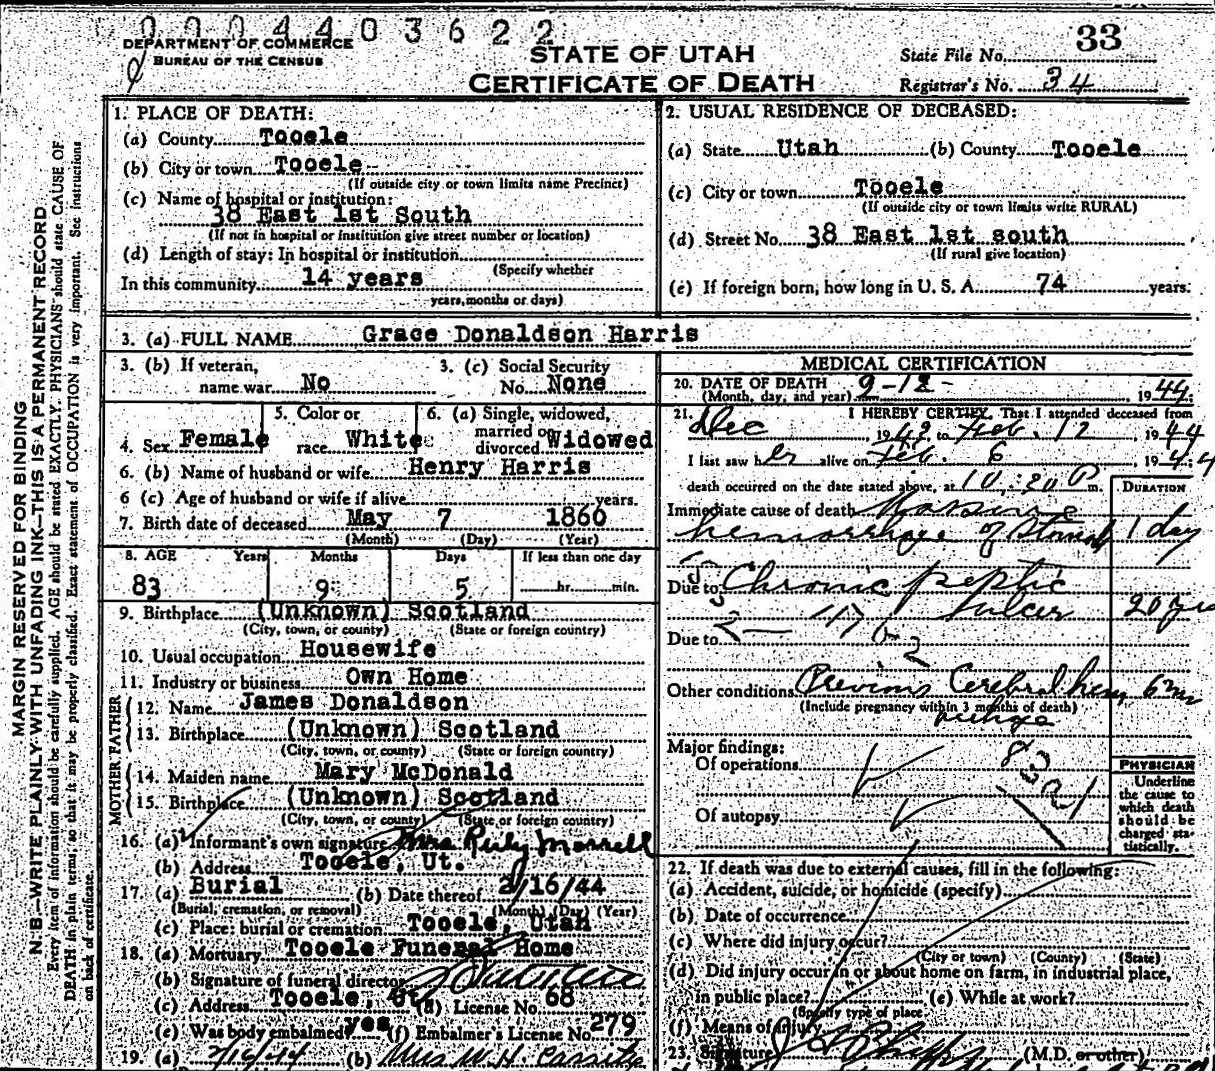 0004403622
DEPARTMENT OF COMMERCE
BUREAU OF THE CENSUS
STATE OF UTAH
CERTIFICATE OF DEATH
State File No. 33
Registrar's No. 34
MARGIN RESERVED FOR BINDING
N.B.—WRITE PLAINLY WITH UNFADING INK—THIS IS A PERMANENT RECORD
Every item of information should be carefully supplied. AGE should be stated EXACTLY. PHYSICIANS should state CAUSE OF
DEATH in plain terms, so that it may be properly classified. Exact statement of OCCUPATION is very important. See instructions
on back of certificate.
1. PLACE OF DEATH:
(a) County Tooele
(b) City or town Tooele
(If outside city or town limits name Precinct)
(c) Name of hospital or institution:
38 East 1st South
(If not in hospital or institution give street number or location)
(d) Length of stay: In hospital or institution
(Specify whether
In this community 14 years
years, months or days)
2. USUAL RESIDENCE OF DECEASED:
(a) State Utah (b) County Tooele
(c) City or town Tooele
(If outside city or town limits write RURAL)
(d) Street No. 38 East 1st south
(If rural give location)
(e) If foreign born, how long in U. S. A. 74 years.
3. (a) FULL NAME Grace Donaldson Harris
3. (b) If veteran,
name war No
3. (c) Social Security
No. None
4. Sex Female
5. Color or
race White
6. (a) Single, widowed,
married or
divorced Widowed
6. (b) Name of husband or wife Henry Harris
6 (c) Age of husband or wife if alive years.
7. Birth date of deceased May 7 1860
(Month) (Day) (Year)
8. AGE Years Months Days If less than one day
83 9 5 hr. min.
9. Birthplace (Unknown) Scotland
(City, town, or county) (State or foreign country)
10. Usual occupation Housewife
11. Industry or business Own Home
FATHER
12. Name James Donaldson
13. Birthplace (Unknown) Scotland
(City, town, or county) (State or foreign country)
MOTHER
14. Maiden name Mary McDonald
15. Birthplace (Unknown) Scotland
(City, town, or county) (State or foreign country)
16. (a) Informant's own signature Mrs
(b) Address Tooele, Ut.
17. (a) Burial (b) Date thereof 2/16/44
(Burial, cremation, or removal) (Month) (Day) (Year)
(c) Place: burial or cremation Tooele, Utah
18. (a) Mortuary Tooele Funeral Home
(b) Signature of funeral director
(c) Address Tooele, Ut. (d) License No. 68
(e) Was body embalmed yes (f) Embalmer's License No. 279
19. (a) 2/16/44 (b) Mrs W. H.
MEDICAL CERTIFICATION
20. DATE OF DEATH 2-12- , 1944.
(Month, day, and year)
21. I HEREBY CERTIFY, That I attended deceased from
Dec 1943, to Feb. 12, 1944
I last saw her alive on Feb. 6, 1944
death occurred on the date stated above, at 10:20 P m.
DURATION
Immediate cause of death Massive
hemorrhage of Stomach 1 day
Due to Chronic peptic
ulcer 20 yrs
Due to
Other conditions Previous Cerebral hem 6 mo
(Include pregnancy within 3 months of death)
Major findings:
Of operations
Of autopsy
PHYSICIAN
Underline
the cause to
which death
should be
charged sta-
tistically.
22. If death was due to external causes, fill in the following:
(a) Accident, suicide, or homicide (specify)
(b) Date of occurrence
(c) Where did injury occur?
(City or town) (County) (State)
(d) Did injury occur in or about home on farm, in industrial place,
in public place? (e) While at work?
(Specify type of place
(f) Means of injury
23. Signature (M.D. or other)